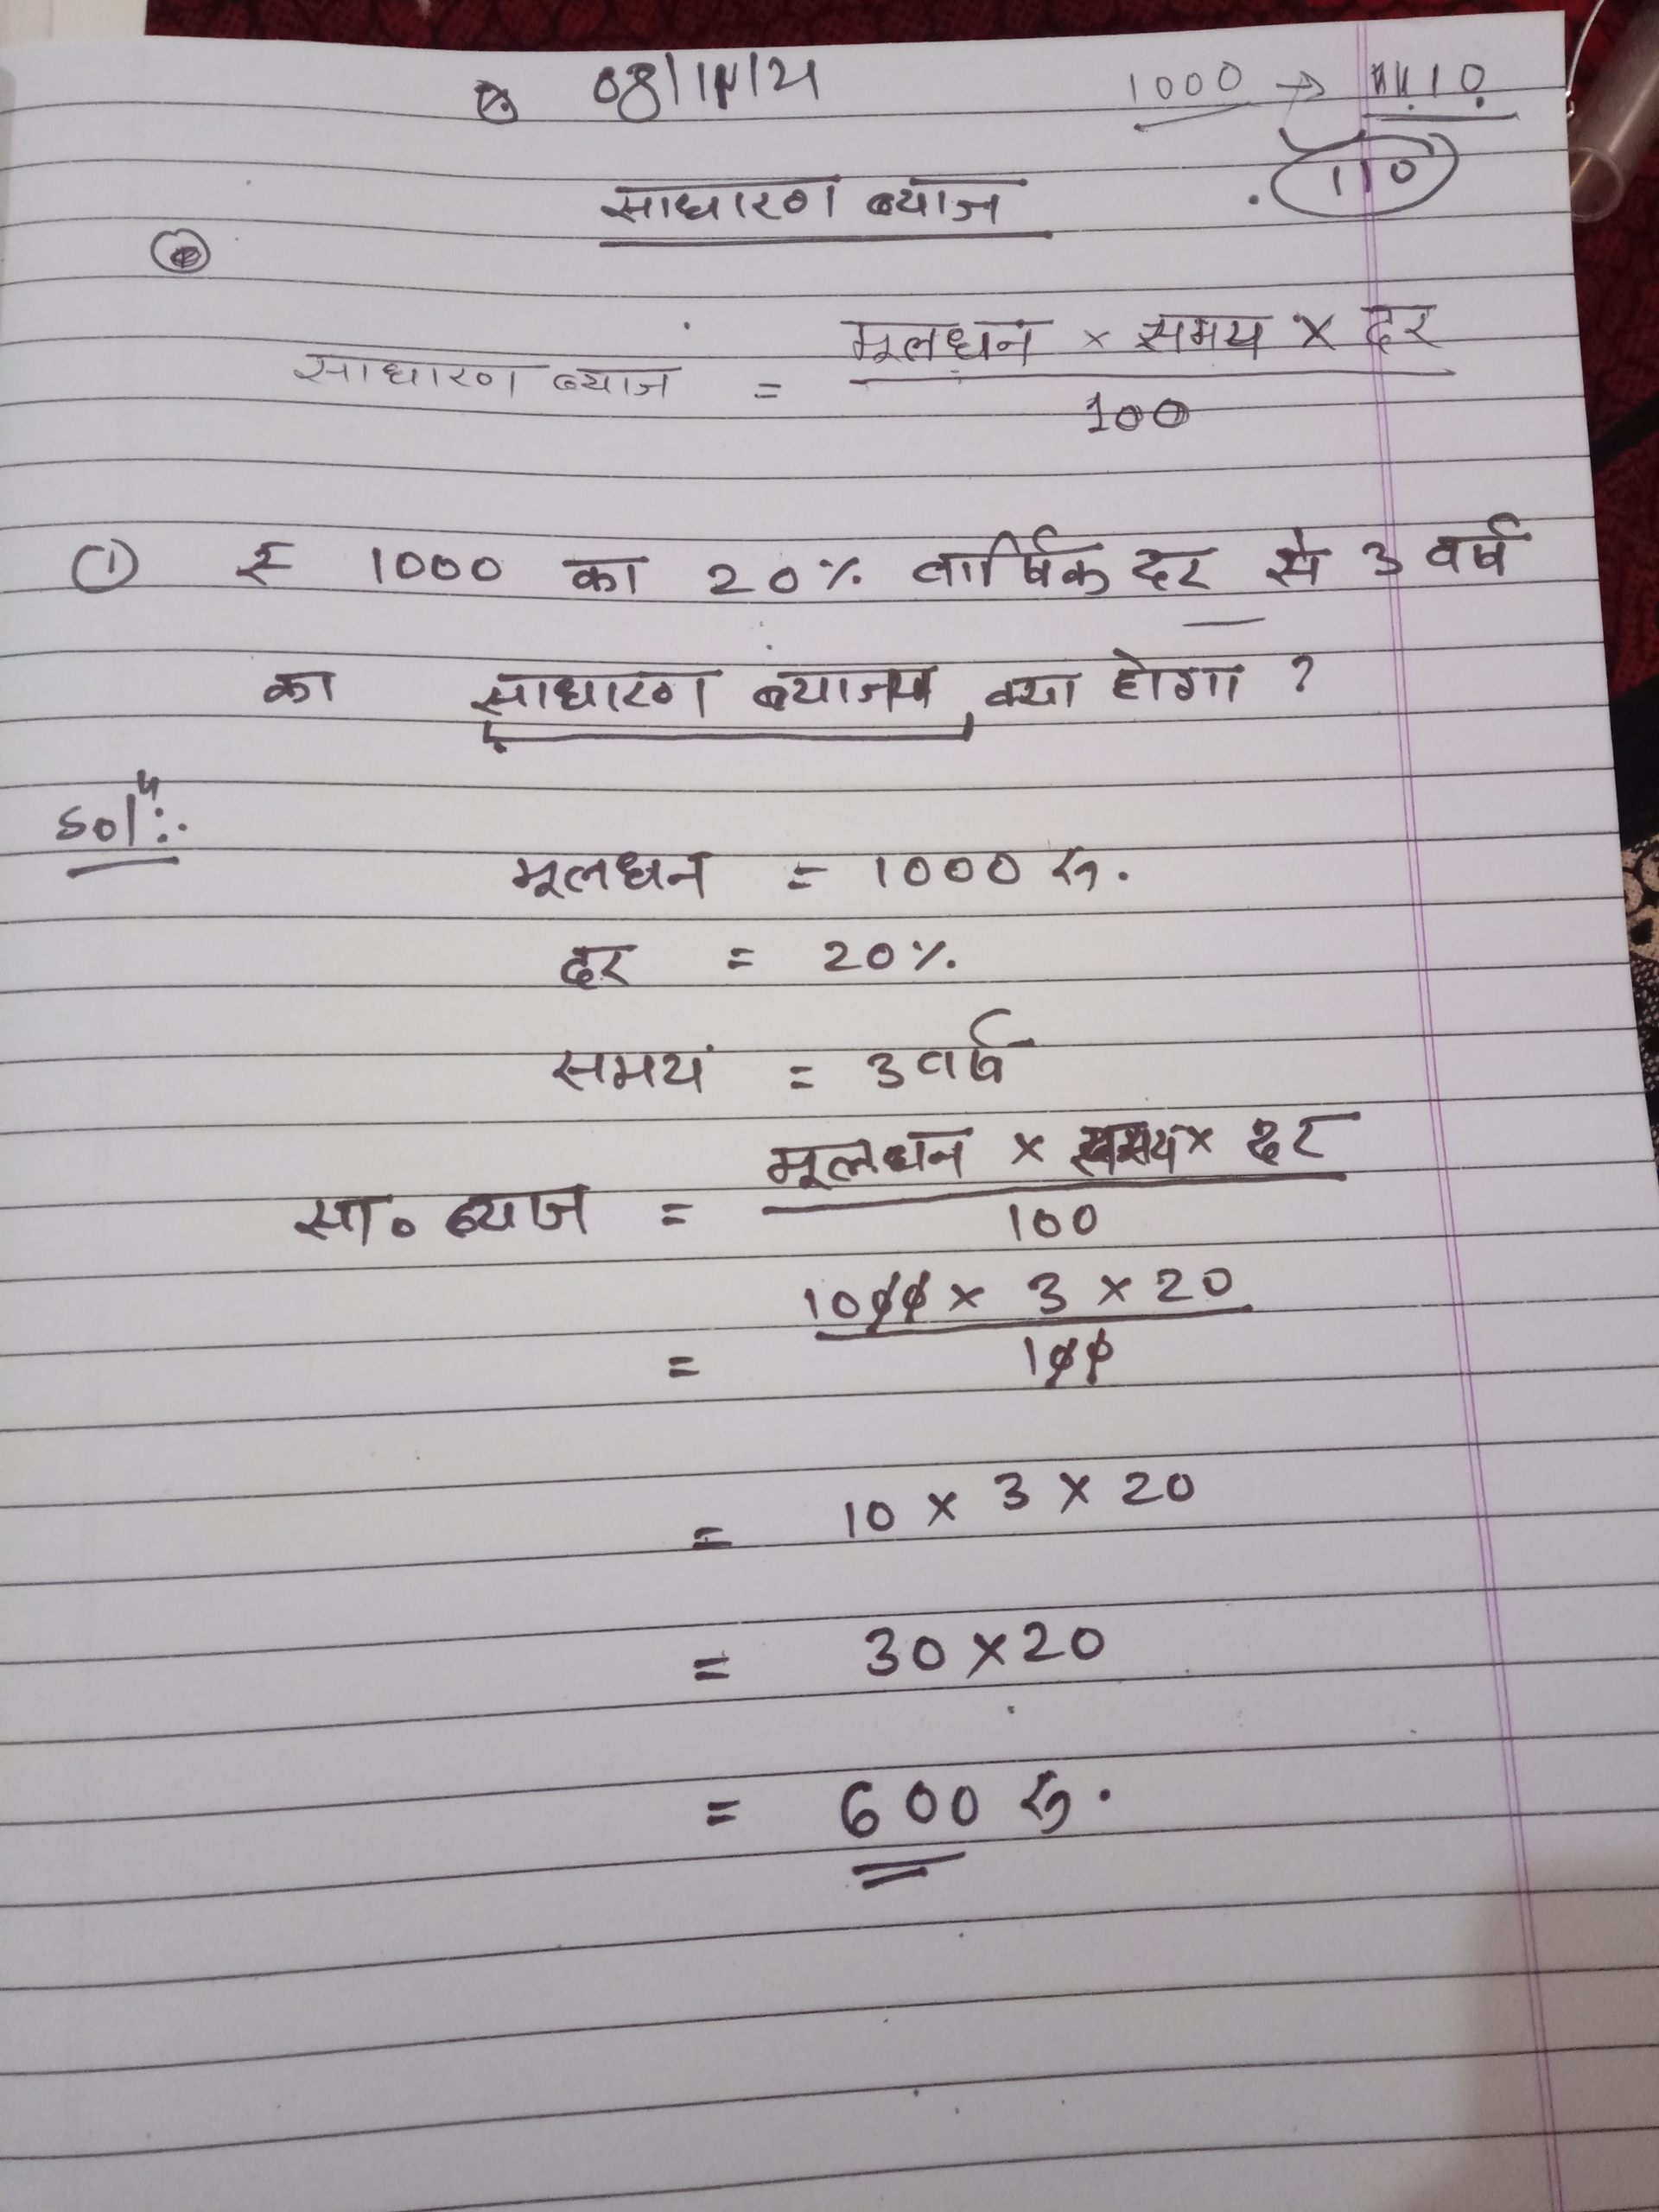 08/11/21
1000 → 1110
110
साधारण ब्याज
साधारण ब्याज = मूलधन × समय × दर
100
① ₹ 1000 का 20% वार्षिक दर से 3 वर्ष
का साधारण ब्याज क्या होगा ?
Solⁿ:.
मूलधन = 1000 रु.
दर = 20%.
समय = 3 वर्ष
सा॰ ब्याज = मूलधन × समय × दर
100
= 1000 × 3 × 20
100
= 10 × 3 × 20
= 30 × 20
= 600 रु.